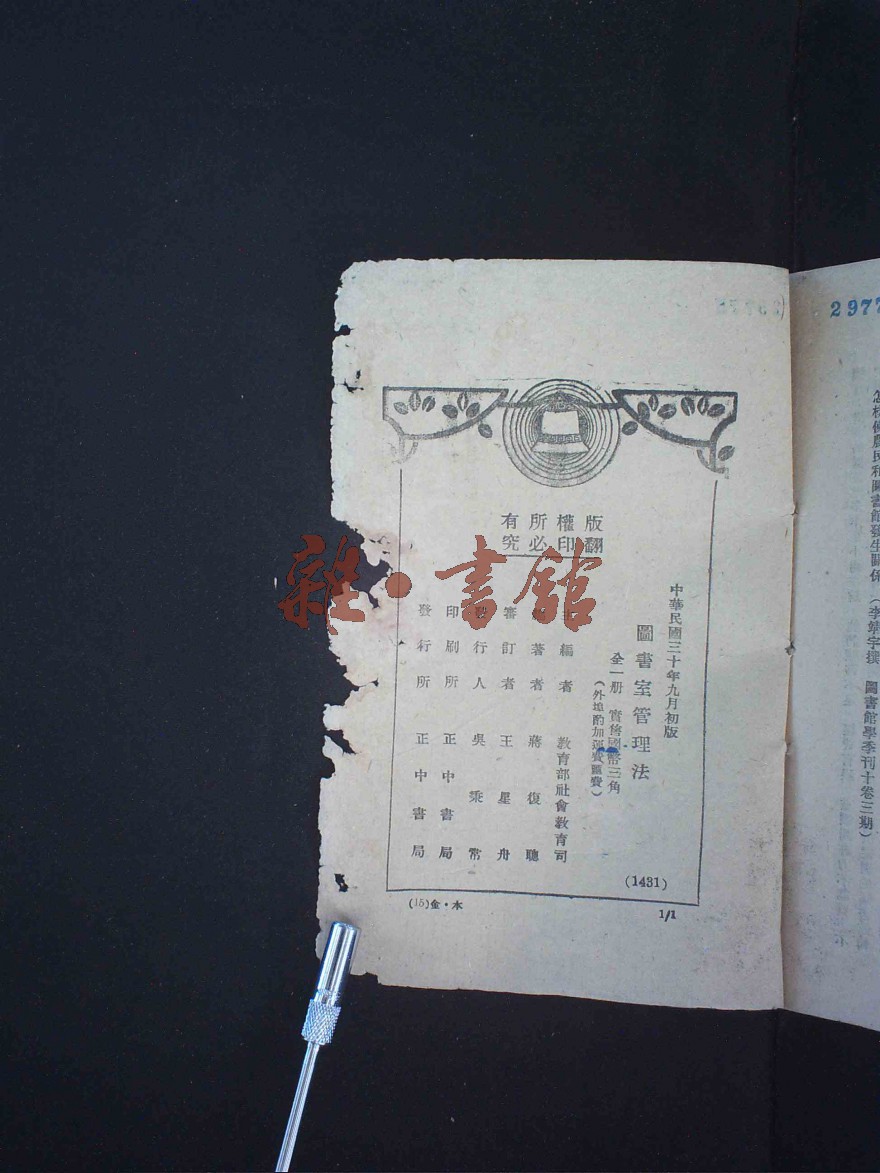 2977
怎樣使農民和圖書館發生關係 （李靖宇撰 圖書館學季刊十卷三期）
版權所有
翻印必究
中華民國三十年九月初版
圖書室管理法
全一册 實售國幣三角
（外埠酌加運費匯費）
主編者 教育部社會教育司
編著者 蔣復聰
審訂者 王星舟
發行人 吳秉常
印刷所 正中書局
發行所 正中書局
(1431)
(15)金·木
1/1
雜·書館